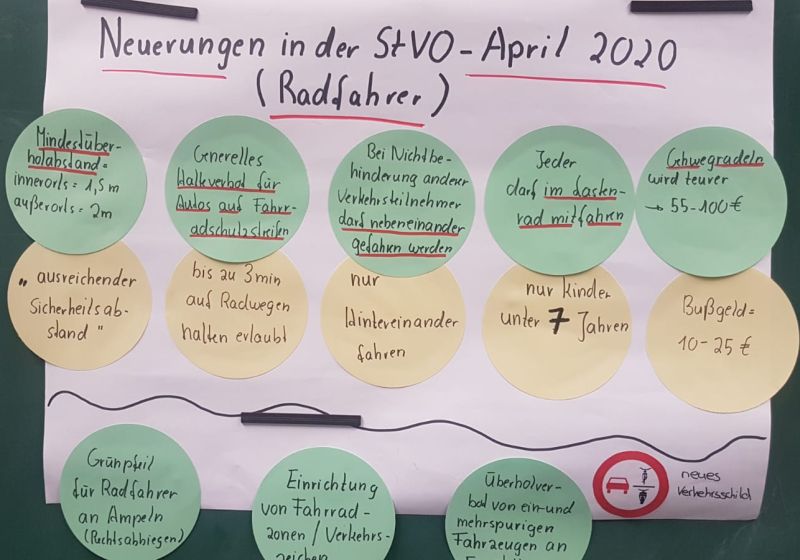 Neuerungen in der StVO - April 2020
(Radfahrer)
Mindestüber-
holabstand=
innerorts = 1,5 m
außerorts = 2m
Generelles
Halteverbot für
Autos auf Fahrr-
adschutzstreifen
Bei Nichtbe-
hinderung anderer
Verkehrsteilnehmer
darf nebeneinander
gefahren werden
Jeder
darf im Lasten-
rad mitfahren
Gehwegradeln
wird teurer
→ 55-100 €
„ausreichender
Sicherheitsab-
stand"
bis zu 3min
auf Radwegen
halten erlaubt
nur
Hintereinander
fahren
nur Kinder
unter 7 Jahren
Bußgeld=
10-25 €
Grünpfeil
für Radfahrer
an Ampeln
(Rechtsabbiegen)
Einrichtung
von Fahrrad-
zonen / Verkehrs-
zeichen
Überholver-
bot von ein- und
mehrspurigen
Fahrzeugen an
neues
Verkehrsschild